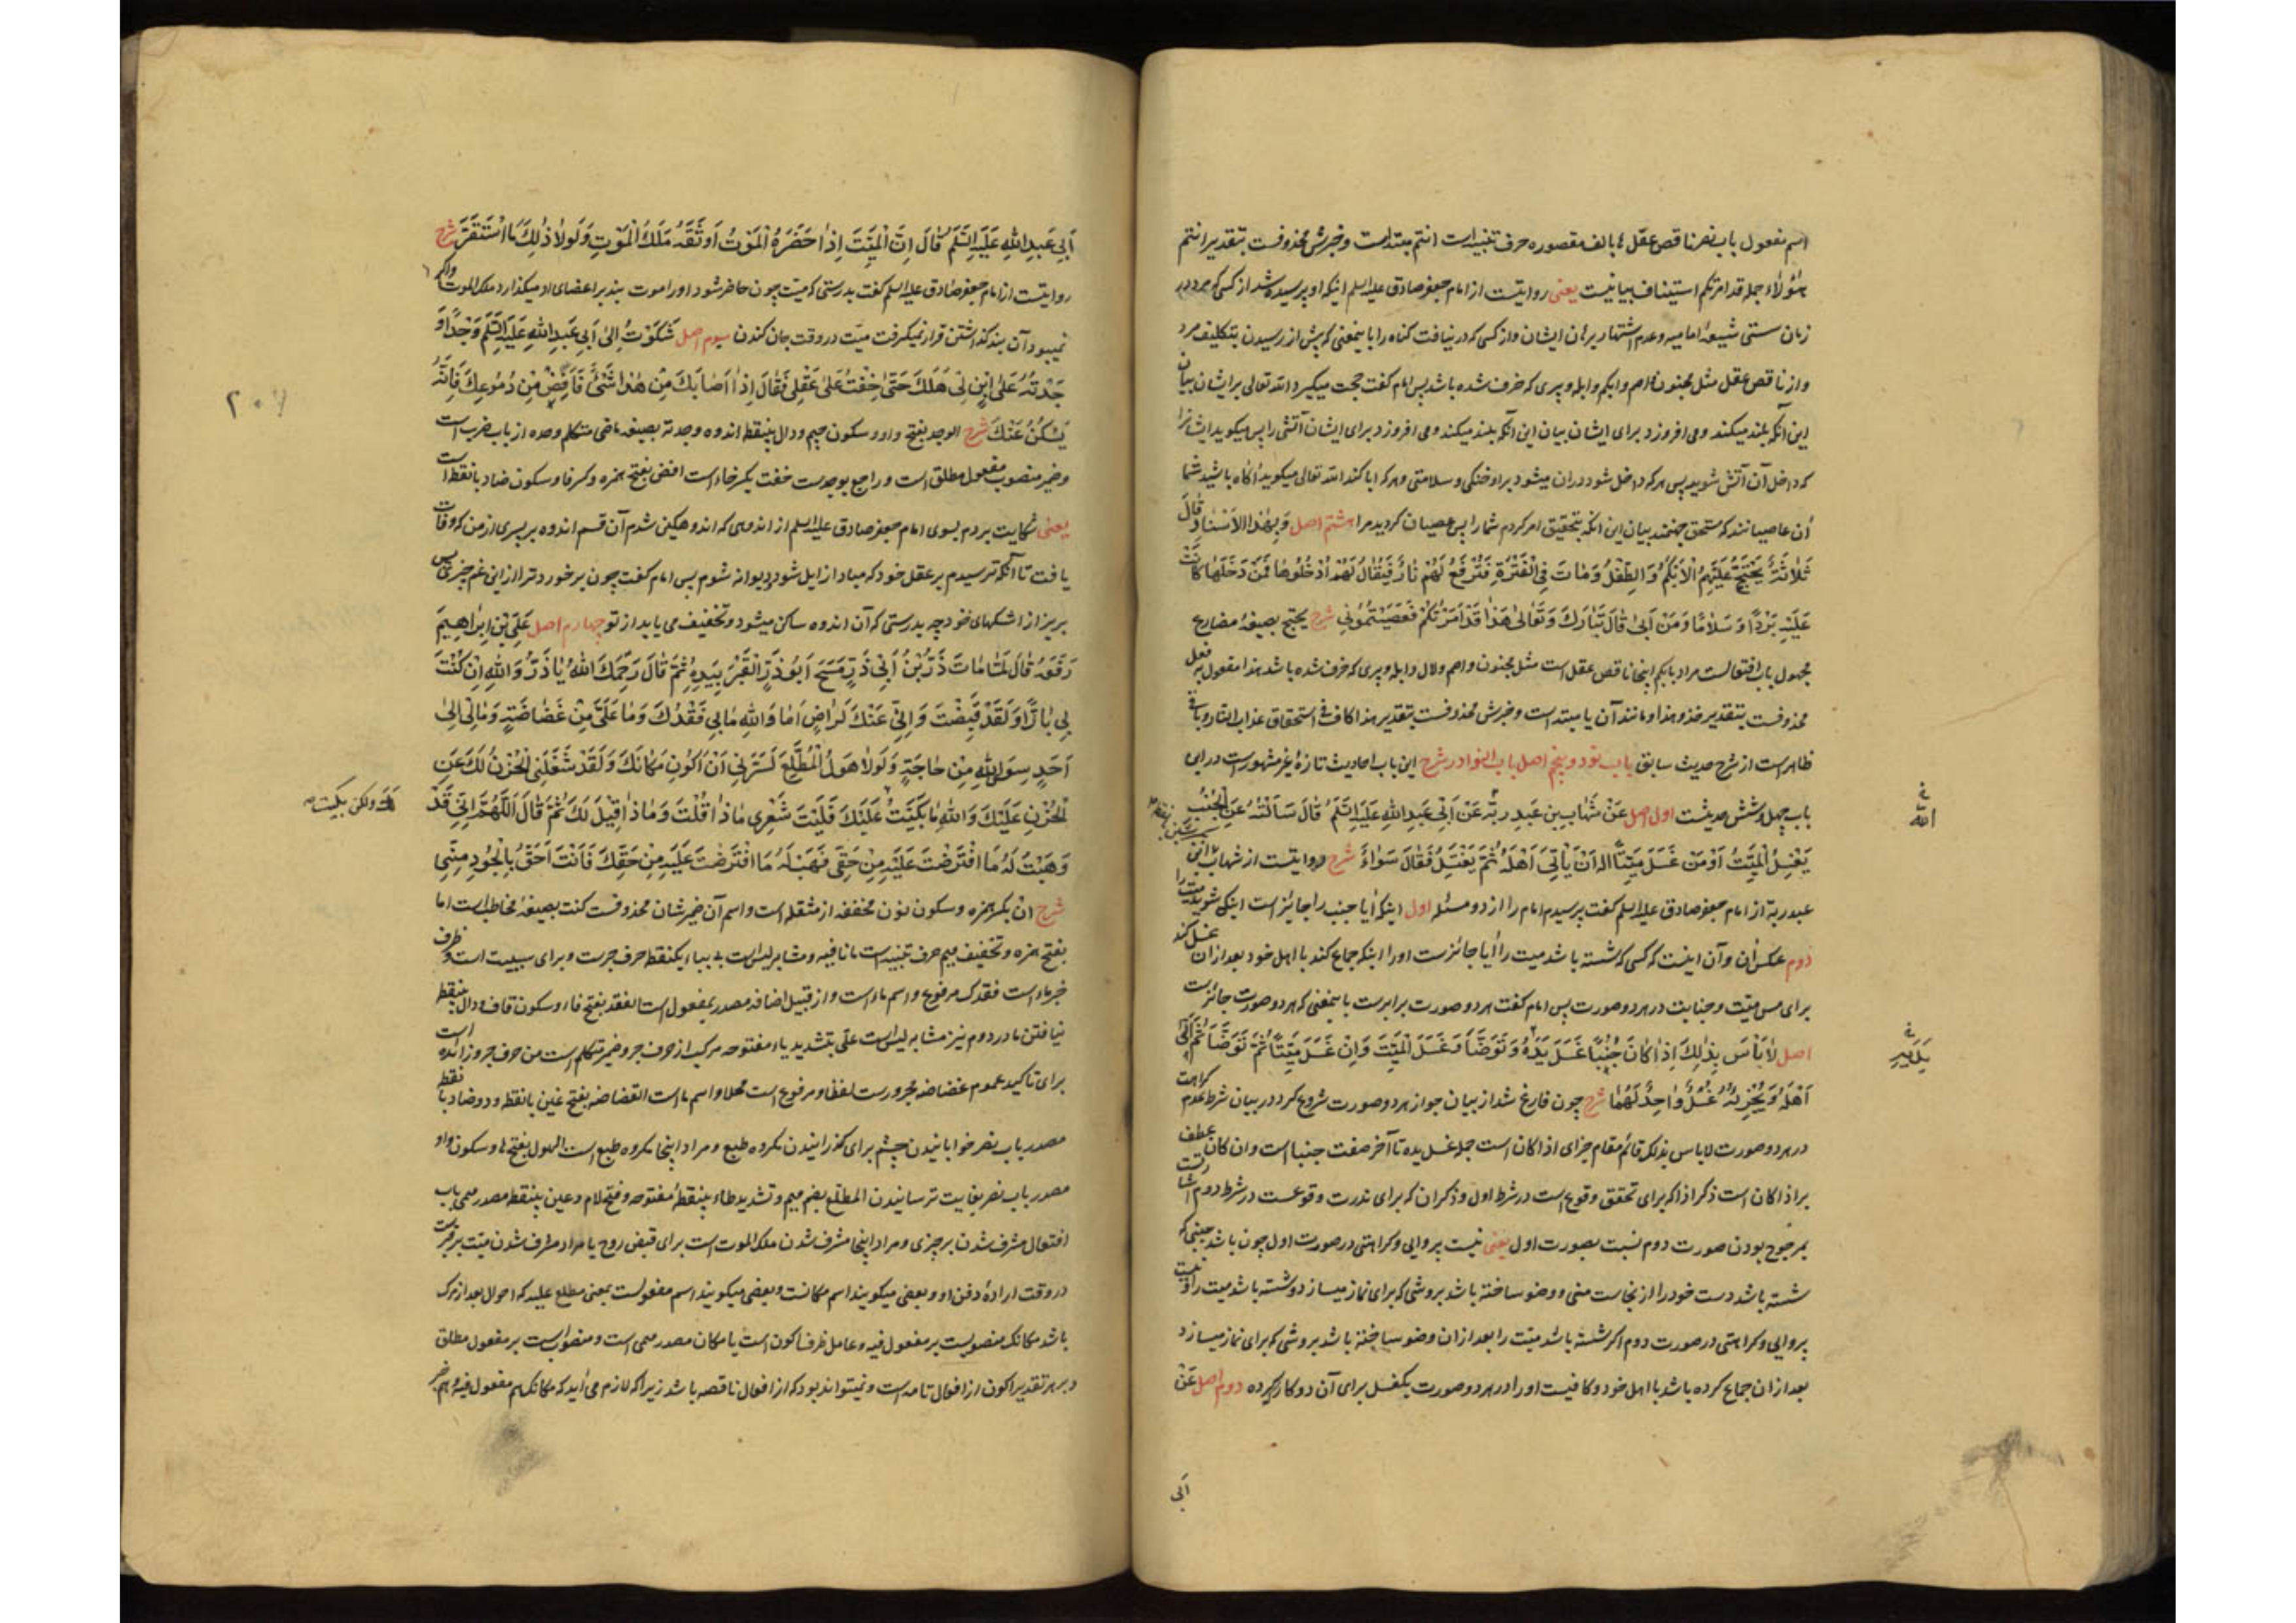 اسم مفعول باب نصر ناقص عقل ها بالف مقصوره حرف تنبیه است انتم مبتداست و خبرش محذوفست بتقدیر انتم
هؤلاء جمله قد امرتکم استیناف بیانیست یعنی روایتست از امام جعفر صادق علیه السلم اینکه او پرسیده شد از کسی که مرد در
زمان سستی شیعهٔ امامیه و عدم اشتهار برهان ایشان و از کسی که در نیافت گناه را باینمعنی که پیش از رسیدن بتکلیف مرد
و از ناقص عقل مثل مجنون و اصم و ابکم و ابله و پیری که خرف شده باشد پس امام گفت حجت میگیرد الله تعالی بر ایشان بیان
این آنکه بلند میکند و می افروزد برای ایشان بیان این آنکه بلند میکند و می افروزد برای ایشان آتشی را پس میگوید ایشانرا
که داخل آن آتش شوید پس هر که داخل شود در ان میشود بر او خنکی و سلامتی و هر که ابا کند الله تعالی میگوید آگاه باشید شما
آن عاصیانند که مستحق جهنمند بیان این آنکه بتحقیق امر کردم شما را پس عصیان کردید مرا هشتم اصل وَبِهٰذَا الْاِسْنَادِ قَالَ
ثَلٰثَةٌ یُحْتَجُّ عَلَیْهِمُ الْاَبْکَمُ وَ الطِّفْلُ وَ مَنْ مَاتَ فِی الْفَتْرَةِ فَتُرْفَعُ لَهُمْ نَارٌ فَیُقَالُ لَهُمْ اُدْخُلُوهَا فَمَنْ دَخَلَهَا کَانَتْ
عَلَیْهِ بَرْدًا وَ سَلَامًا وَ مَنْ اَبیٰ قَالَ تَبَارَکَ وَ تَعَالیٰ هٰذَا قَدْ اَمَرْتُکُمْ فَعَصَیْتُمُونِی شرح یحتج بصیغهٔ مضارع
مجهول باب افتعالست مراد بابکم اینجا ناقص عقل است مثل مجنون و اصم و لال و ابله و پیری که خرف شده باشد هذا مفعول به فعل
محذوفست بتقدیر خذو هذا و مانند آن یا مبتداست و خبرش محذوفست بتقدیر هذا کاف فی استحقاق عذاب النار و باقی
ظاهر است از شرح حدیث سابق باب نود و پنجم اصل باب النوادر شرح این باب احادیث تازهٔ غیر مشهور است در این
باب چهل و شش حدیثست اول اصل عَنْ شِهَابِ بنِ عَبدِ رَبِّه عَنْ اَبِی عَبدِ اللهِ عَلَیهِ السَّلَمُ قَالَ سَاَلْتُهُ عَنِ الْجُنُبِ
یَغْسِلُ الْمَیِّتَ اَوْ مَنْ غَسَلَ مَیِّتًا اله اَنْ یَأتِیَ اَهْلَهُ ثُمَّ یَغْتَسِلُ فَقَالَ سَوَاءٌ شرح روایتست از شهاب ابن
عبد ربه از امام جعفر صادق علیه السلم گفت پرسیدم امام را از دو مسئله اول اینکه آیا جنب را جائز است اینکه شوید میت را
دوم عکس آن و آن اینست که کسی که شسته باشد میت را آیا جائزست او را اینکه جماع کند با اهل خود بعد از ان غسل کند
برای مس میت و جنابت در هر دو صورت پس امام گفت هر دو صورت برابرست باینمعنی که هر دو صورت جائزست
اصل لَا بَأسَ بِذٰلِکَ اِذَا کَانَ جُنُبًا غَسَلَ یَدَهُ وَ تَوَضَّأَ وَ غَسَلَ الْمَیِّتَ وَ اِنْ غَسَلَ مَیِّتًا ثُمَّ تَوَضَّأَ ثُمَّ اَتیٰ
اَهْلَهُ وَ یُجْزِیهِ غُسْلٌ وَاحِدٌ لَهُمَا شرح چون فارغ شد از بیان جواز هر دو صورت شروع کرد در بیان شرط عدم کراهت
در هر دو صورت لا باس بذلک قائم مقام جزای اذا کان است جمله غسل یده تا آخر صفت جنبا است و ان کان عطف
بر اذا کان است ذکر اذا که برای تحقق وقوع است در شرط اول و ذکر ان که برای ندرت وقوعست در شرط دوم اشارتست
بمرجوح بودن صورت دوم نسبت بصورت اول یعنی نیست پروایی و کراهتی در صورت اول چون باشد جنبی که
شسته باشد دست خود را از نجاست منی و وضو ساخته باشد بروشی که برای نماز میسازد و شسته باشد میت را و نیست
پروایی و کراهتی در صورت دوم اگر شسته باشد میت را بعد از ان وضو ساخته باشد بروشی که برای نماز میسازد
بعد از ان جماع کرده باشد با اهل خود و کافیست او را در هر دو صورت یکغسل برای آن دو کار کرده دوم اصل عَنْ
ابی
الله
اَبِی عَبدِ اللهِ عَلَیهِ السَّلَمُ قَالَ اِنَّ الْمَیِّتَ اِذَا حَضَرَهُ الْمَوْتُ اَوْثَقَهُ مَلَکُ الْمَوْتِ وَ لَولَا ذٰلِکَ مَا اسْتَقَرَّ شرح
روایتست از امام جعفر صادق علیه السلم گفت بدرستی که میت چون حاضر شود او را موت بند بر اعضای او میگذارد ملک الموت و اگر
نمیبود آن بند گذاشتن قرار نمیگرفت میت در وقت جان کندن سیوم اصل شَکَوْتُ اِلیٰ اَبِی عَبدِ اللهِ عَلَیهِ السَّلَم وَجْدًا وَ
جَدْتُهُ عَلیٰ اِبْنٍ لِی هَلَکَ حَتّیٰ خِفْتُ عَلیٰ عَقْلِی فَقَالَ اِذَا اَصَابَکَ مِنْ هٰذَا شَیْئٌ فَاَفِضْ مِنْ دُمُوعِکَ فَاِنَّهُ
یَسْکُنُ عَنْکَ شرح الوجد بفتح واو و سکون جیم و دال بینقطه اندوه وجدته بصیغه ماضی متکلم وحده از باب ضرب است
و ضمیر منصوب مفعول مطلق است و راجع بوجدست خفت بکسر خاء است افض بفتح همزه و کسر فا و سکون ضاد با نقطه است
یعنی شکایت بردم بسوی امام جعفر صادق علیه السلم از اندوهی که اندوهگین شدم آن قسم اندوه بر پسری از من که وفات
یافت تا آنکه ترسیدم بر عقل خود که مبادا زایل شود و دیوانه شوم پس امام گفت چون برخورد ترا از این غم چیزی پس
بریز از اشکهای خود چه بدرستی که آن اندوه ساکن میشود و تخفیف می یابد از تو چهارم اصل عَلِیُّ بْنُ اِبرَاهِیمَ
رَفَعَهُ قَالَ لَمَّا مَاتَ ذَرُّ بْنُ اَبِی ذَرٍّ مَسَحَ اَبُو ذَرٍّ الْقَبْرَ بِیَدِهِ ثُمَّ قَالَ رَحِمَکَ اللهُ یَا ذَرُّ وَ اللهِ اِنْ کُنْتَ
بِی بَارًّا وَ لَقَدْ قُبِضْتَ وَ اِنِّی عَنْکَ لَرَاضٍ اَمَا وَ اللهِ مَا بِی فَقْدُکَ وَ مَا عَلَیَّ مِنْ غَضَاضَةٍ وَ مَالِی اِلیٰ
اَحَدٍ سِوَی اللهِ مِنْ حَاجَةٍ وَ لَولَا هَوْلُ الْمُطَّلَعِ لَسَرَّنِی اَنْ اَکُونَ مَکَانَکَ وَ لَقَدْ شَغَلَنِی الْحُزْنُ لَکَ عَنِ
الْحُزْنِ عَلَیْکَ وَ اللهِ مَا بَکَیْتُ عَلَیْکَ فَلَیْتَ شَعْرِی مَاذَا قُلْتَ وَ مَاذَا قِیلَ لَکَ ثُمَّ قَالَ اَللّٰهُمَّ اِنِّی قَدْ
ولکن بکیت
وَهَبْتُ لَهُ مَا افْتَرَضْتَ عَلَیْهِ مِنْ حَقِّی فَهَبْ لَهُ مَا افْتَرَضْتَ عَلَیْهِ مِنْ حَقِّکَ فَاَنْتَ اَحَقُّ بِالْجُودِ مِنِّی
شرح ان بکسر همزه و سکون نون مخففه از مثقله است و اسم آن ضمیر شان محذوفست کنت بصیغهٔ مخاطب است اما
بفتح همزه و تخفیف میم حرف تنبیه است ما نافیه و مشابه لیس است بی بباء یکنقطه حرف جرست و برای سببیت است و ظرف
خبر ماء است فقدک مرفوع و اسم ماء است و از قبیل اضافه مصدر بمفعول است الفقد بفتح فاء و سکون قاف و دال بینقطه
نیافتن ما در دوم نیز مشابه لیس است علیّ بتشدید یاء مفتوحه مرکب از حرف جر و ضمیر متکلم است من حرف جر و زائده است
برای تاکید عموم غضاضه مجرورست لفظا و مرفوع است محلا و اسم ما است الغضاضه بفتح غین با نقطه و دو ضاد با نقطه
مصدر باب نصر خوابانیدن چشم برای گذرانیدن مکروه طبع و مراد اینجا مکروه طبع است الهول بفتح ها و سکون واو
مصدر باب نصر بغایت ترسانیدن المطلع بضم میم و تشدید طاء بینقطهٔ مفتوحه و فتح لام و عین بینقطه مصدر میمی باب
افتعال مشرف شدن بر چیزی و مراد اینجا مشرف شدن ملک الموت است برای قبض روح یا مراد مشرف شدن میت بر قبرست
در وقت ارادهٔ دفن او و بعضی میگویند اسم مکانست و بعضی میگویند اسم مفعولست بمعنی مطلع علیه که احوال بعد از مرگ
باشد مکانک منصوبست بر مفعول فیه و عامل ظرف اکون است یا مکان مصدر میمی است و منصوب است بر مفعول مطلق
و بر هر تقدیر اکون از افعال تامه است و نمیتواند بود که از افعال ناقصه باشد زیرا که لازم می آید که مکانک هم مفعول فیه و هم خبر
۲۰۷